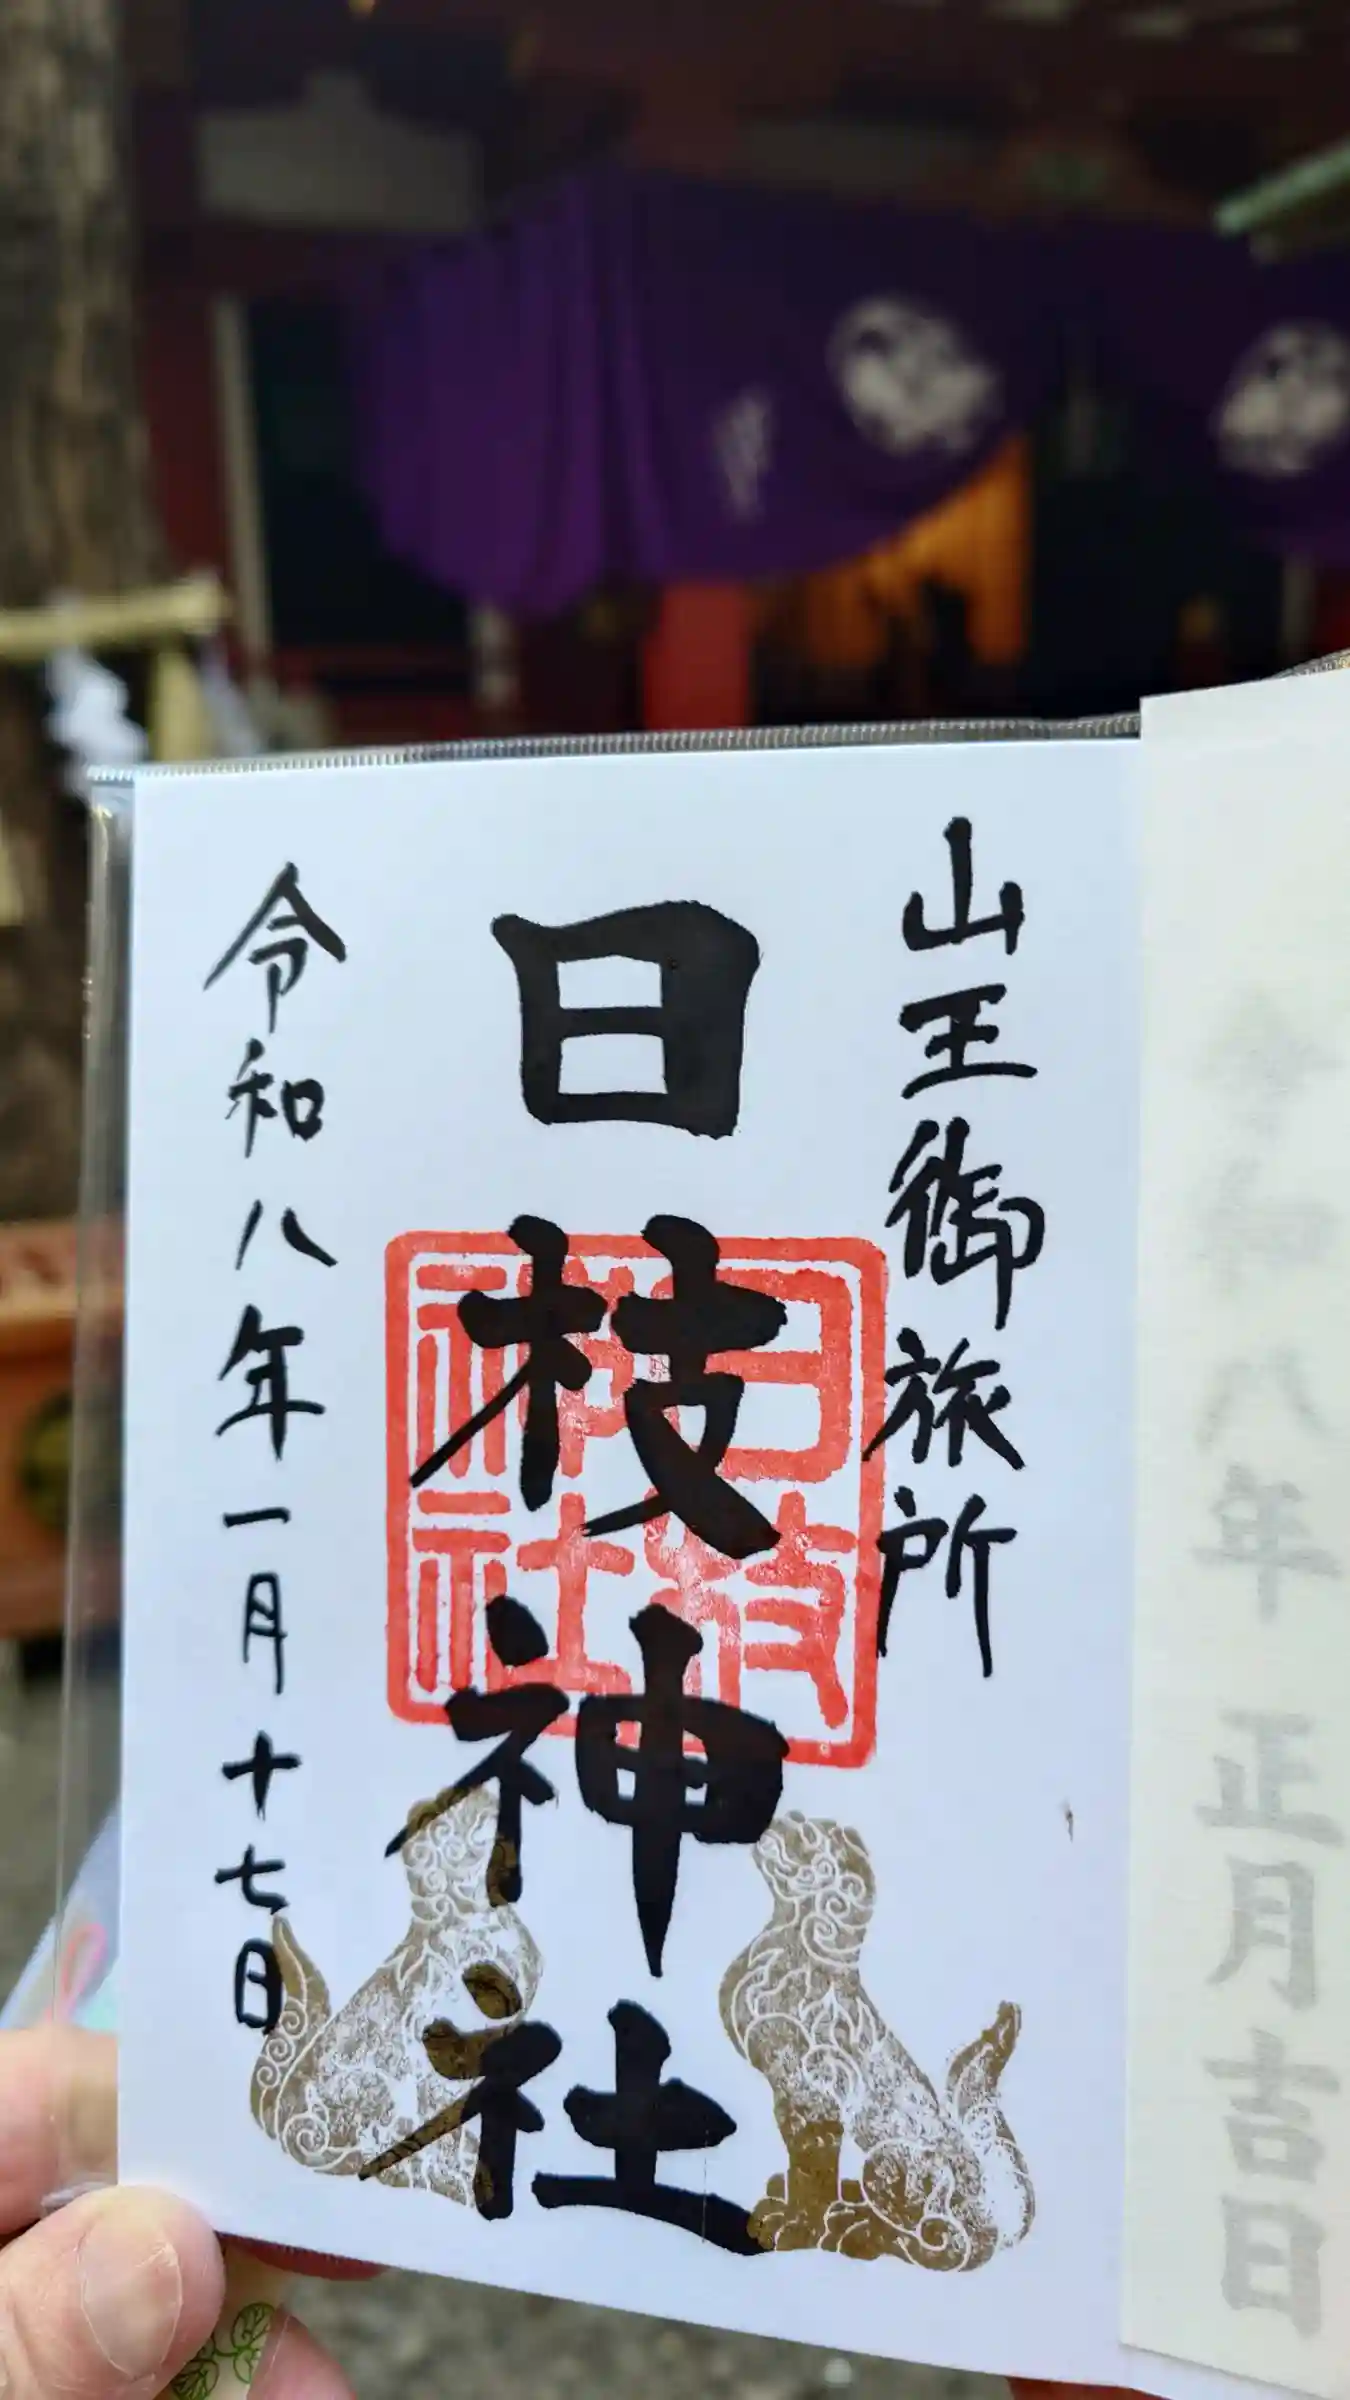 令和八年 正月吉日
山王御旅所
日枝神社
日枝神社
令和八年一月十七日